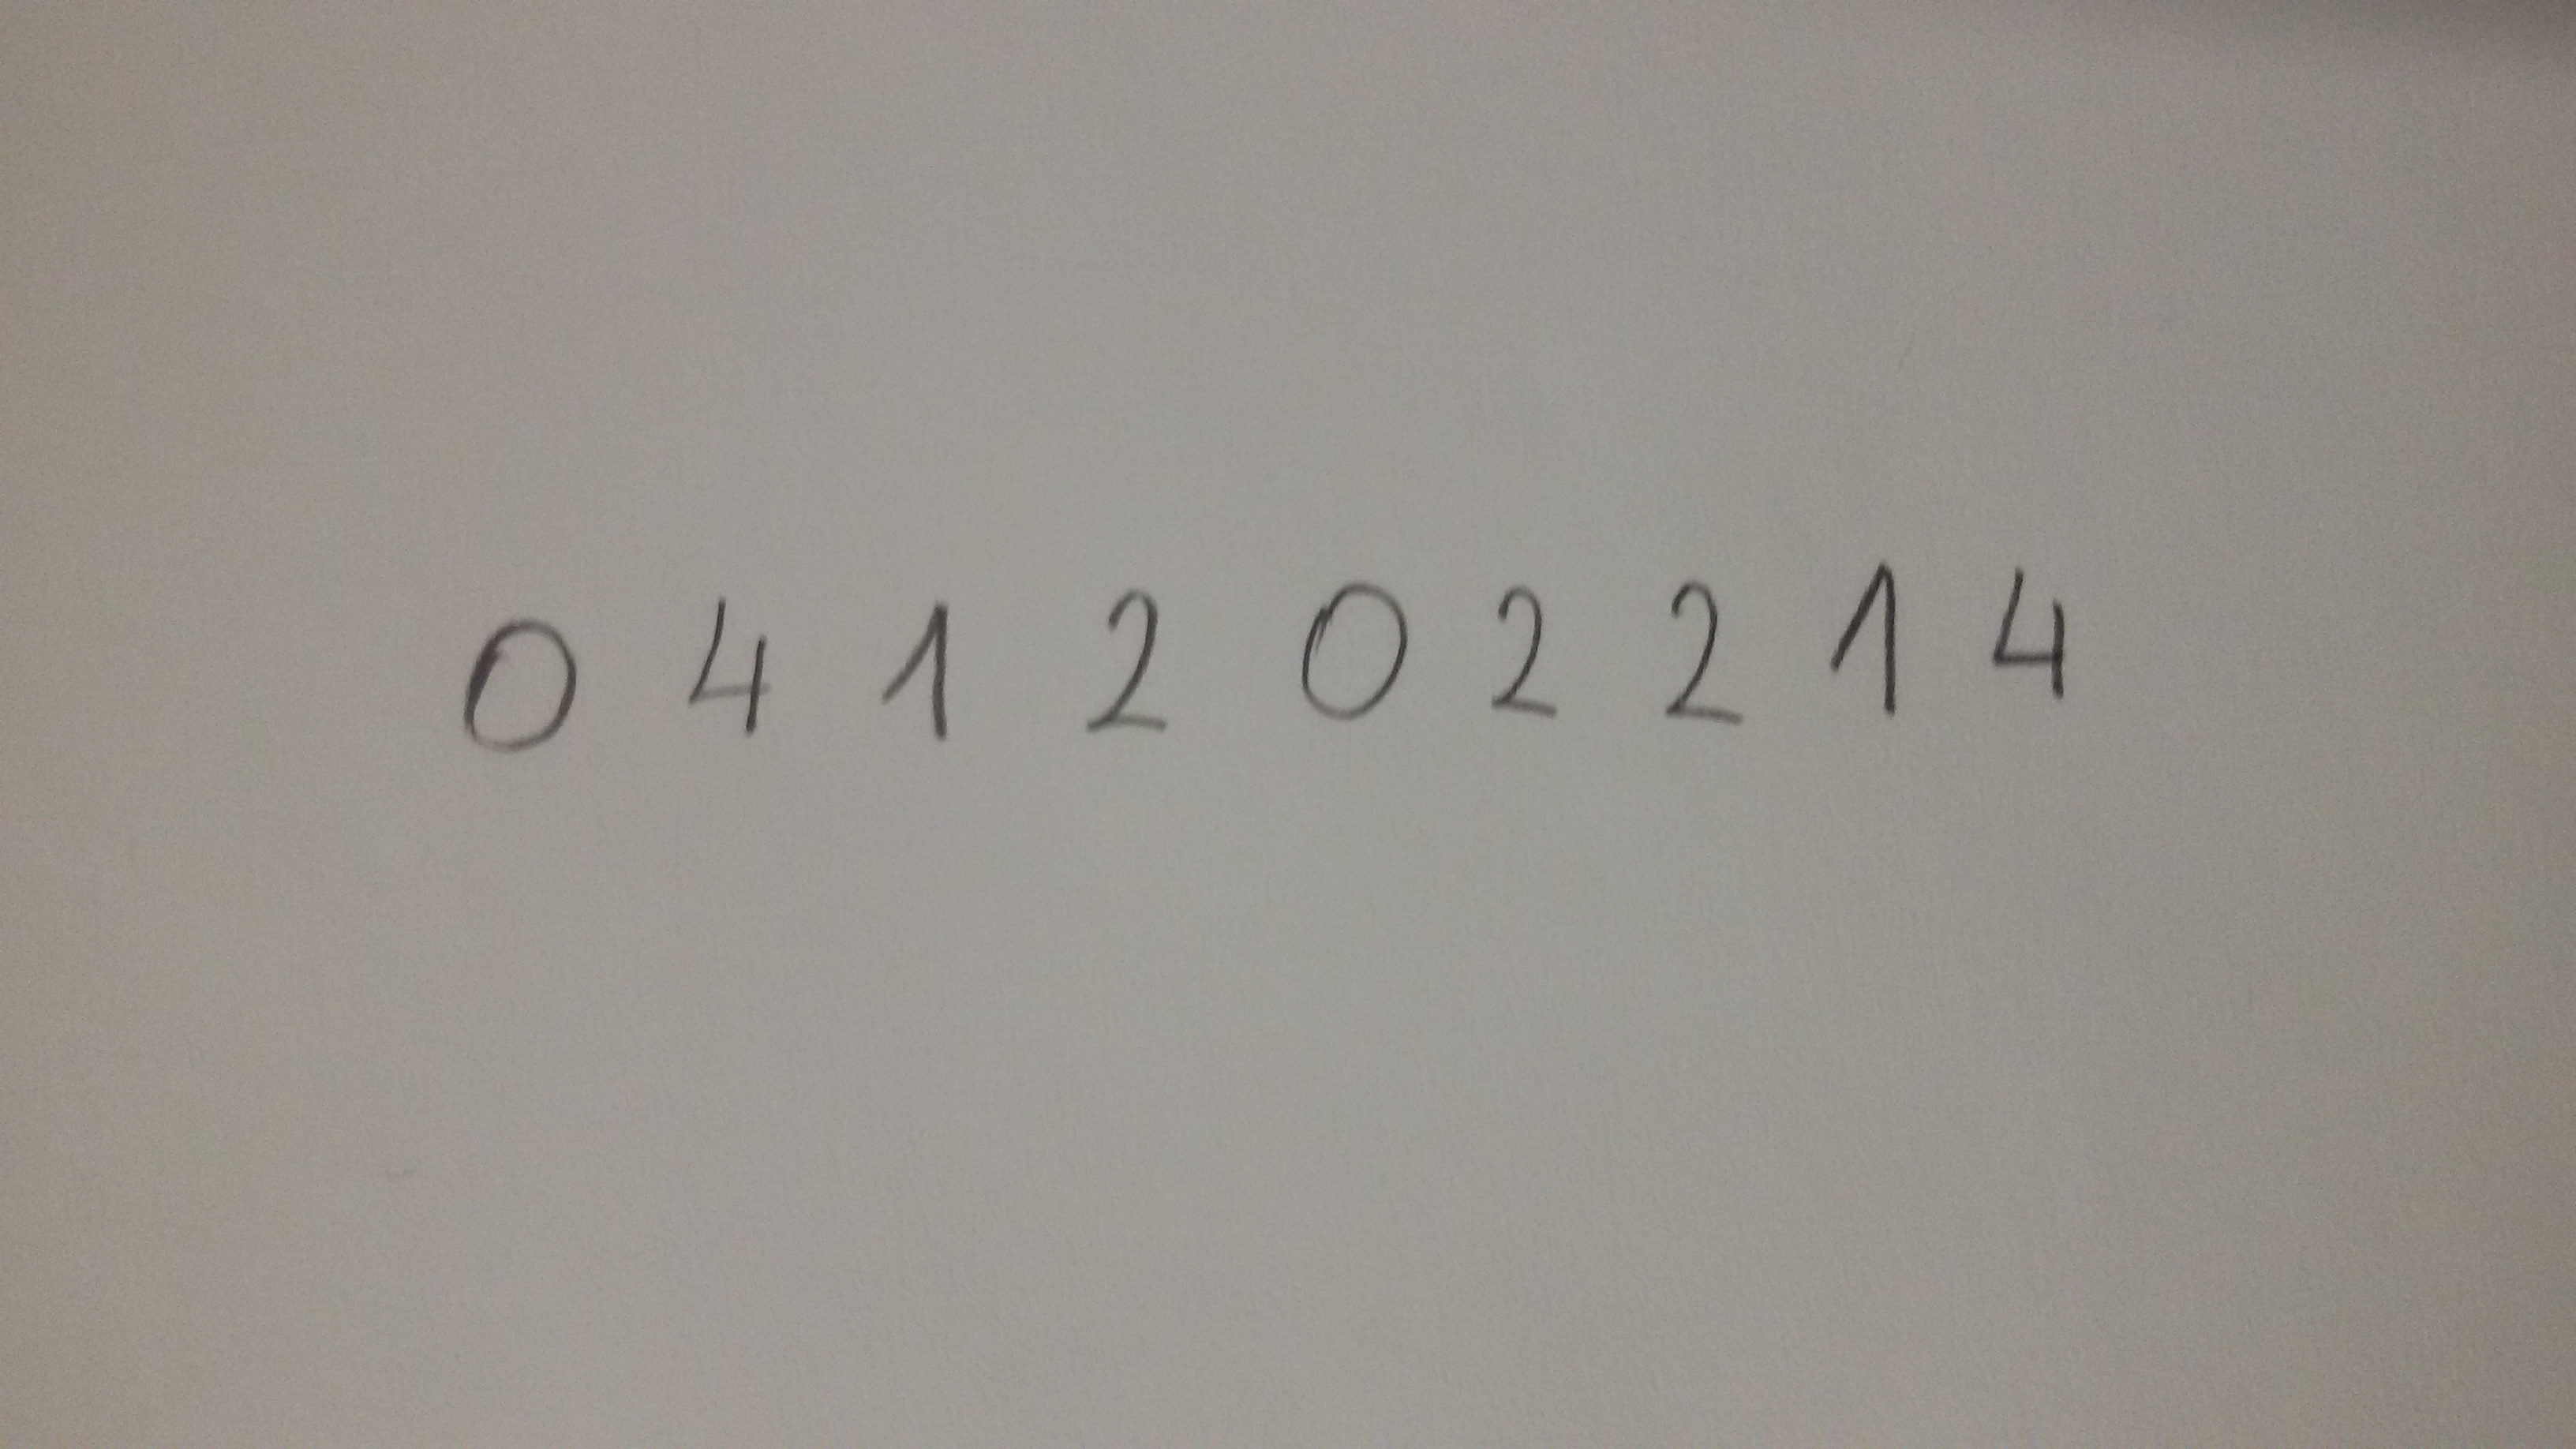 0 4 1 2 0 2 2 1 4